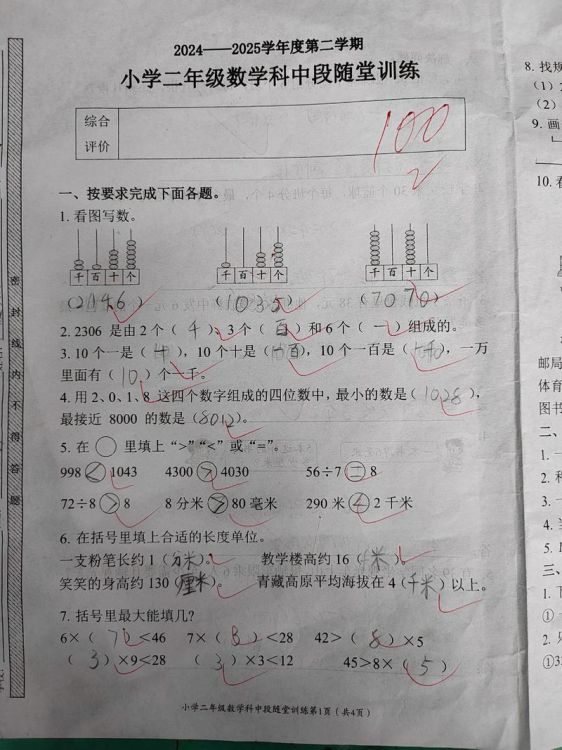 2024——2025学年度第二学期
小学二年级数学科中段随堂训练
综合
评价
100
2
一、按要求完成下面各题。
1. 看图写数。
千 百 十 个 千 百 十 个 千 百 十 个
(2146) (1035) (7070)
2. 2306 是由 2 个（千）、3 个（百）和 6 个（一）组成的。
3. 10 个一是（十），10 个十是（一百），10 个一百是（一千），一万
里面有（10）个一千。
4. 用 2、0、1、8 这四个数字组成的四位数中，最小的数是（1028），
最接近 8000 的数是（8012）。
5. 在 ○ 里填上“>”“<”或“=”。
998 < 1043 4300 > 4030 56÷7 = 8
72÷8 > 8 8 分米 > 80 毫米 290 米 < 2 千米
6. 在括号里填上合适的长度单位。
一支粉笔长约 1（分米）。 教学楼高约 16（米）。
笑笑的身高约 130（厘米）。 青藏高原平均海拔在 4（千米）以上。
7. 括号里最大能填几？
6×（7）<46 7×（3）<28 42>（8）×5
（3）×9<28 （3）×3<12 45>8×（5）
小学二年级数学科中段随堂训练第1页（共4页）
密封线内不得答题
8. 找规
（1）
（2）
9. 画
10. 看
邮局
体育
图书
二、
1.
2.
3.
4.
5.
三、
1.
①
2.
①